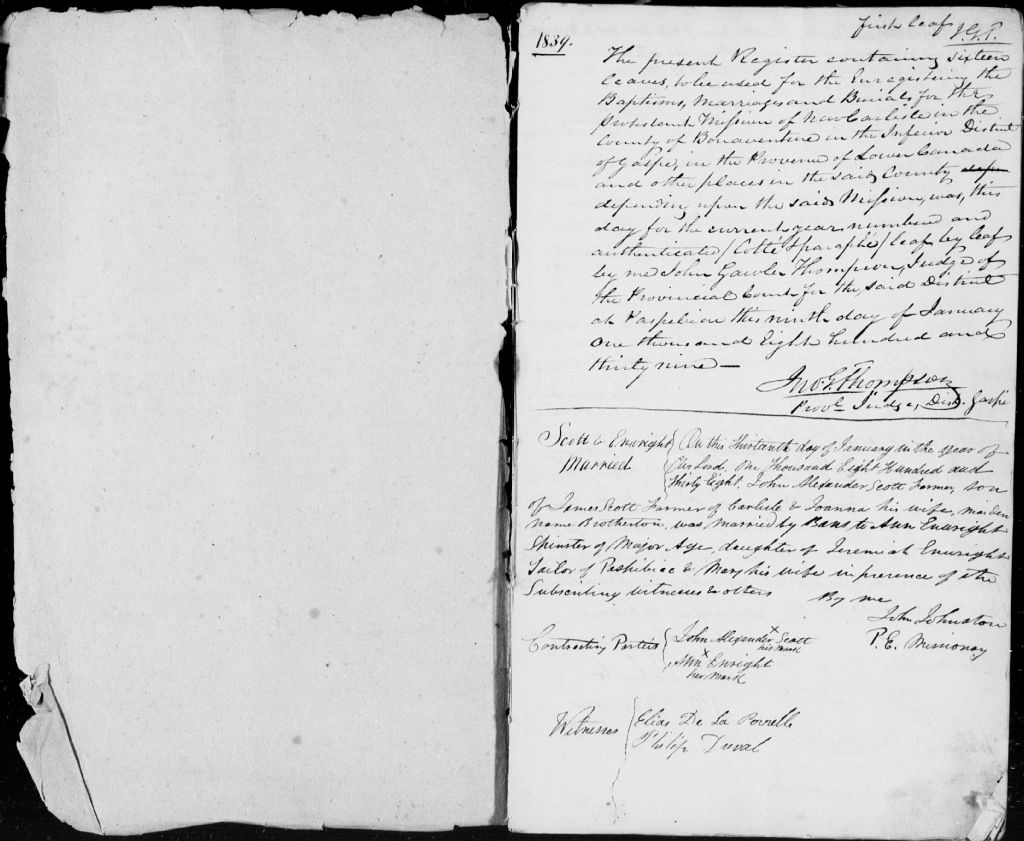 first leaf J.G.T.
1839.
The present Register containing sixteen
leaves, to be used for the Enregistering the
Baptisms, Marriages and Burials for the
Protestant Mission of New Carlisle in the
County of Bonaventure in the Inferior District
of Gaspe, in the Province of Lower Canada
and other places in the said County
depending upon the said Mission, was, this
day for the current year numbered and
authenticated / Cotté & paraphé / leaf by leaf
by me John Gawler Thompson, Judge of
the Provincial Court for the said District
at Paspebiac this ninth day of January
One thousand Eight hundred and
thirty nine —
Jno. G. Thompson
Provl. Judge, Dist. Gaspé
Scott & Enwright
Married
On this Thirtenth day of January in the year of
Our Lord, One Thousand Eight Hundred and
Thirty Eight. John Alexander Scott Farmer, son
of James Scott Farmer of Carlisle & Joanna his wife, maiden
name Brotherton, was married by Bans to Ann Enwright
Spinster of Major Age, daughter of Jeremiah Enwright
Tailor of Paspibiac & Mary his wife in presence of the
Subscribing witnesses & others
By me
John Johnston
P. E. Missionary
Contracting Parties
John Alexander x Scott
his Mark
Ann x Enright
her Mark
Witnesses
Elias De La Perrelle
Philip Duval